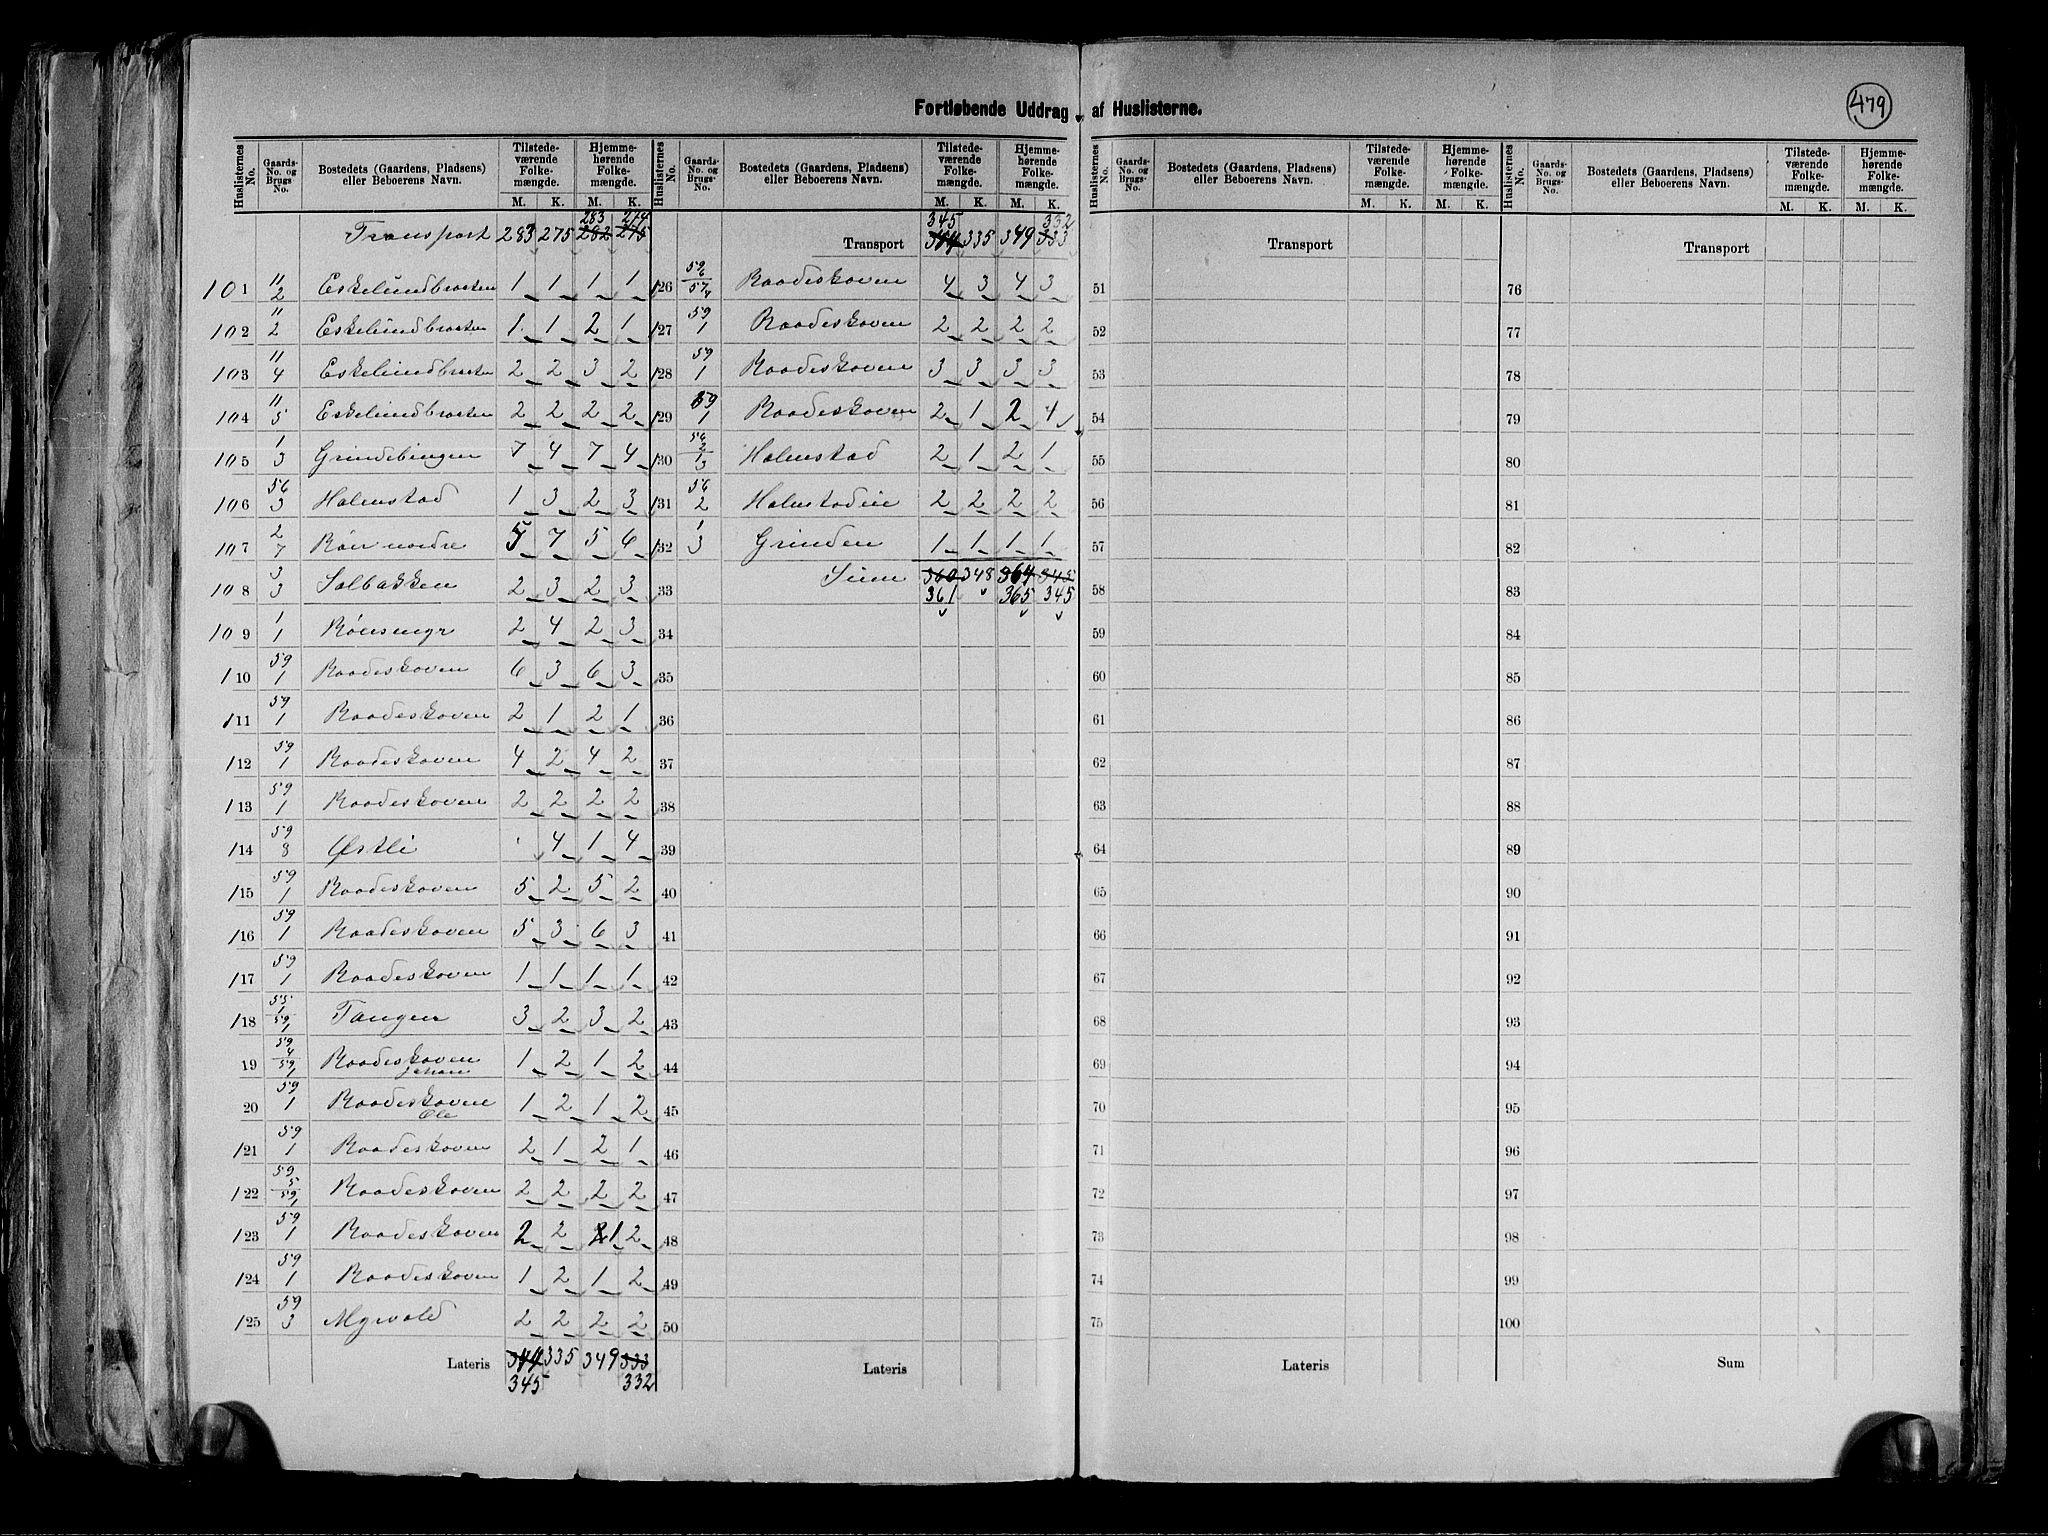 479
Fortløbende Uddrag af Huslisterne.
Huslisternes No. | Gaards-No. og Brugs-No. | Bostedets (Gaardens, Pladsens) eller Beboerens Navn. | Tilstedeværende Folkemængde. M. K. | Hjemmehørende Folkemængde. M. K.
283 274
Transport 283 275 282 275
101 11/2 Eskelundbraaten 1 1 1 1
102 11/2 Eskelundbraaten 1 1 2 1
103 11/4 Eskelundbraaten 2 2 3 2
104 11/5 Eskelundbraaten 2 2 2 2
105 1/3 Grindebingen 7 4 7 4
106 56/3 Halmstad 1 3 2 3
107 2/7 Röer nordre 5 7 5 6
108 3/3 Solbakken 2 3 2 3
109 1/1 Rönsmyr 2 4 2 3
110 59/1 Raadeskoven 6 3 6 3
111 59/1 Raadeskoven 2 1 2 1
112 59/1 Raadeskoven 4 2 4 2
113 59/1 Raadeskoven 2 2 2 2
114 59/8 Østli · 4 1 4
115 59/1 Raadeskoven 5 2 5 2
116 59/1 Raadeskoven 5 3 6 3
117 59/1 Raadeskoven 1 1 1 1
118 55/1 59/1 Tangen 3 2 3 2
19 59/4 59/1 Raadeskoven Johan 1 2 1 2
20 59/1 Raadeskoven Ole 1 2 1 2
121 59/1 Raadeskoven 2 1 2 1
122 59/5 59/1 Raadeskoven 2 2 2 2
123 59/1 Raadeskoven 2 2 2 1 2
124 59/1 Raadeskoven 1 2 1 2
125 59/3 Myrvold 2 2 2 2
Lateris 344 335 349 333
345 332
Huslisternes No. | Gaards-No. og Brugs-No. | Bostedets (Gaardens, Pladsens) eller Beboerens Navn. | Tilstedeværende Folkemængde. M. K. | Hjemmehørende Folkemængde. M. K.
345 332
Transport 344 335 349 333
126 59/6 57/4 Raadeskoven 4 3 4 3
127 59/1 Raadeskoven 2 2 2 2
128 59/1 Raadeskoven 3 3 3 3
129 59/1 Raadeskoven 2 1 2 1
130 Halmstad 2 1 2 1
131 56/2 2 2 2 2
132 1/3 Grinden 1 1 1 1
33 Sum 360 348 364 345
361 365 345
34
35
36
37
38
39
40
41
42
43
44
45
46
47
48
49
50
Lateris
Huslisternes No. | Gaards-No. og Brugs-No. | Bostedets (Gaardens, Pladsens) eller Beboerens Navn. | Tilstedeværende Folkemængde. M. K. | Hjemmehørende Folkemængde. M. K.
Transport
51
52
53
54
55
56
57
58
59
60
61
62
63
64
65
66
67
68
69
70
71
72
73
74
75
Lateris
Huslisternes No. | Gaards-No. og Brugs-No. | Bostedets (Gaardens, Pladsens) eller Beboerens Navn. | Tilstedeværende Folkemængde. M. K. | Hjemmehørende Folkemængde. M. K.
Transport
76
77
78
79
80
81
82
83
84
85
86
87
88
89
90
91
92
93
94
95
96
97
98
99
100
Sum